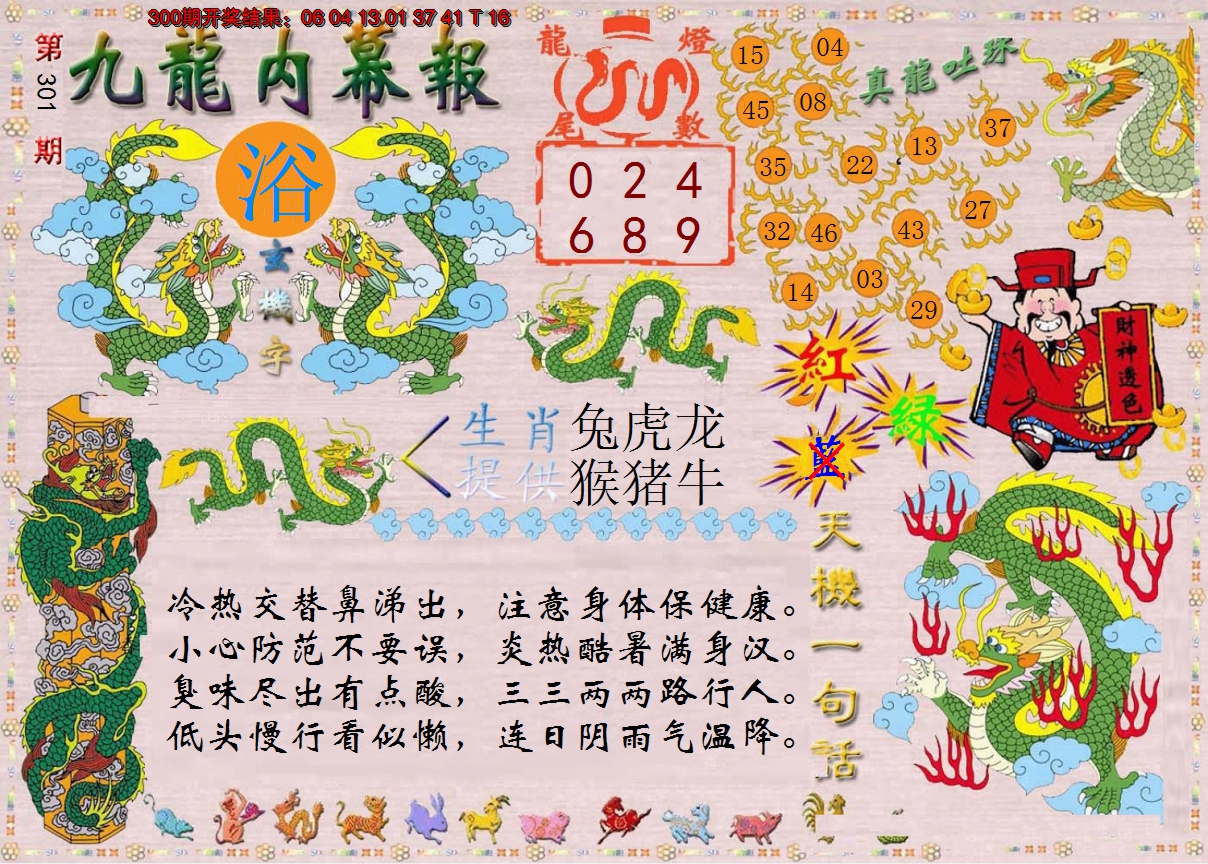 300期开奖结果：06 04 13 01 37 41 T 16
第301期
九龍内幕報
浴
玄機字
龍燈
尾數
0 2 4
6 8 9
真龍吐珠
15
04
45
08
37
13
35
22
27
32
46
43
03
14
29
財神透色
紅
綠
藍
生肖
提供
兔虎龙
猴猪牛
天機一句話
冷热交替鼻涕出，注意身体保健康。
小心防范不要误，炎热酷暑满身汉。
臭味尽出有点酸，三三两两路行人。
低头慢行看似懒，连日阴雨气温降。